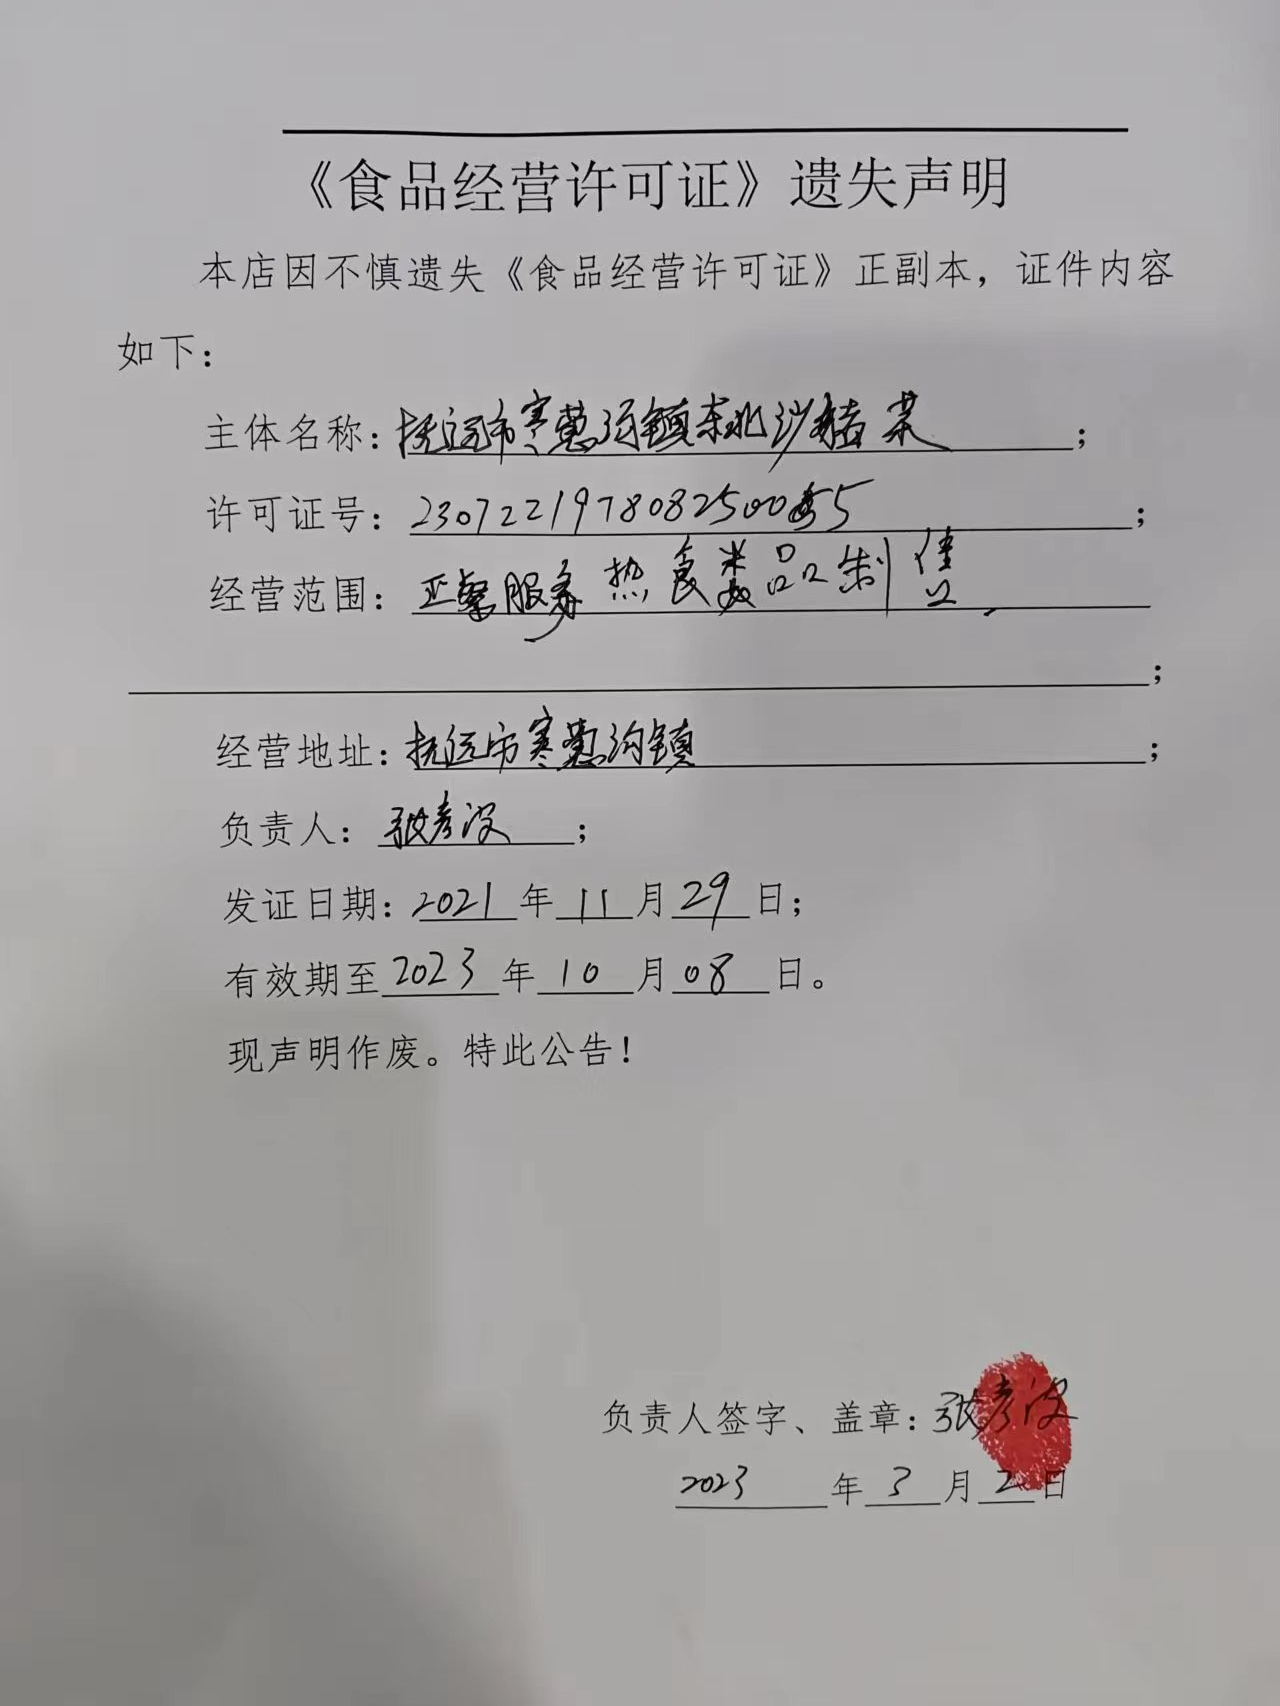 《食品经营许可证》遗失声明
本店因不慎遗失《食品经营许可证》正副本，证件内容
如下：
主体名称：抚远市寒葱沟镇东北沙菜；
许可证号：230722197808250055；
经营范围：服务 热食类品制售
；
经营地址：抚远市寒葱沟镇；
负责人：张彦波；
发证日期：2021年11月29日；
有效期至2023年10月08日。
现声明作废。特此公告！
负责人签字、盖章：张彦波
2023年3月2日